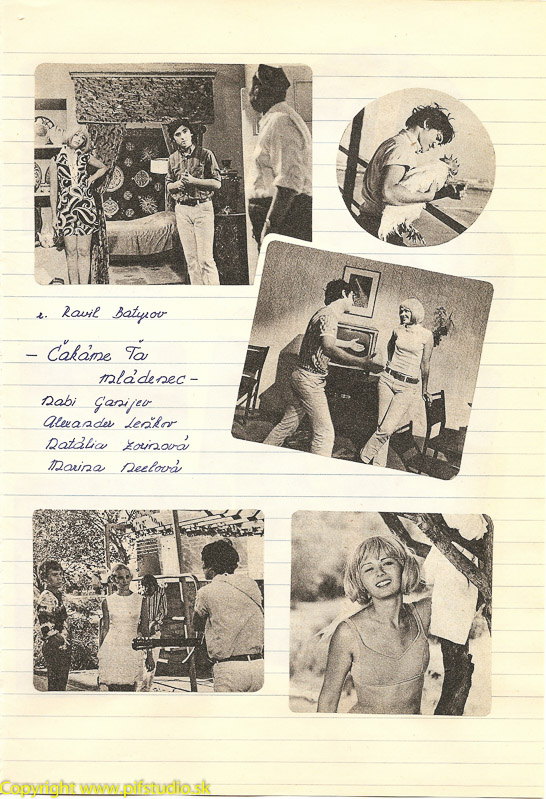 r. Ravil Batyrov
- Čakáme Ťa
mládenec -
Nabi Ganijev
Alexander Leňkov
Natália Zorinová
Marina Neelová
Copyright www.pifstudio.sk